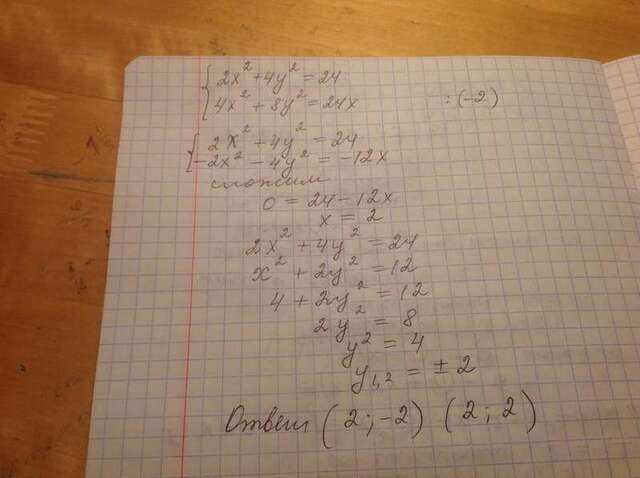 2x² + 4y² = 24
4x² + 8y² = 24x :(-2)
2x² + 4y² = 24
-2x² - 4y² = -12x
сложим
0 = 24 - 12x
x = 2
2x² + 4y² = 24
x² + 2y² = 12
4 + 2y² = 12
2y² = 8
y² = 4
y₁,₂ = ± 2
Ответ (2; -2) (2; 2)